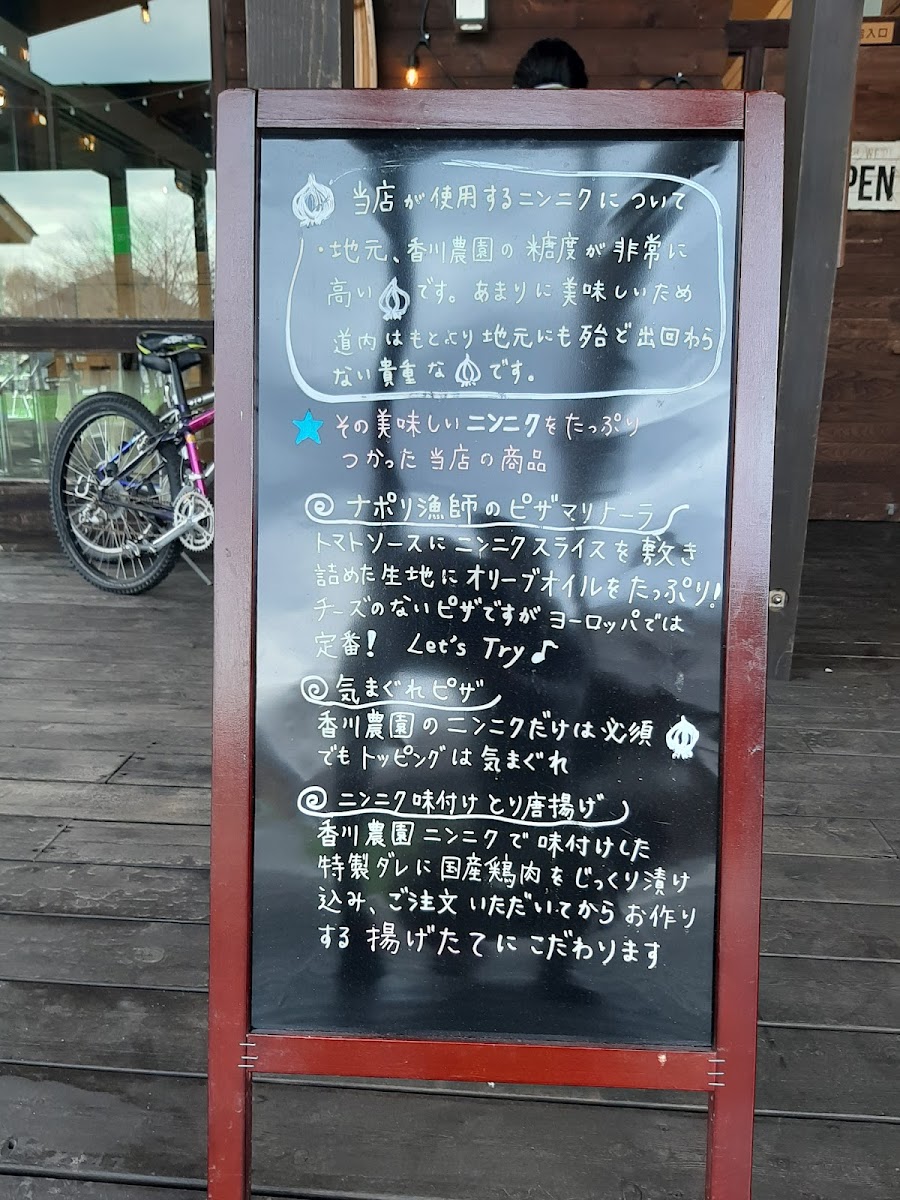 館入口
PEN
当店が使用するニンニクについて
・地元、香川農園の糖度が非常に
高いです。あまりに美味しいため
道内はもとより地元にも殆ど出回わら
ない貴重なです。
その美味しいニンニクをたっぷり
つかった当店の商品
ナポリ漁師のピザマリナーラ
トマトソースにニンニクスライスを敷き
詰めた生地にオリーブオイルをたっぷり!
チーズのないピザですがヨーロッパでは
定番! Let's Try♪
気まぐれピザ
香川農園のニンニクだけは必須
でもトッピングは気まぐれ
ニンニク味付けとり唐揚げ
香川農園ニンニクで味付けした
特製ダレに国産鶏肉をじっくり漬け
込み、ご注文いただいてからお作り
する揚げたてにこだわります